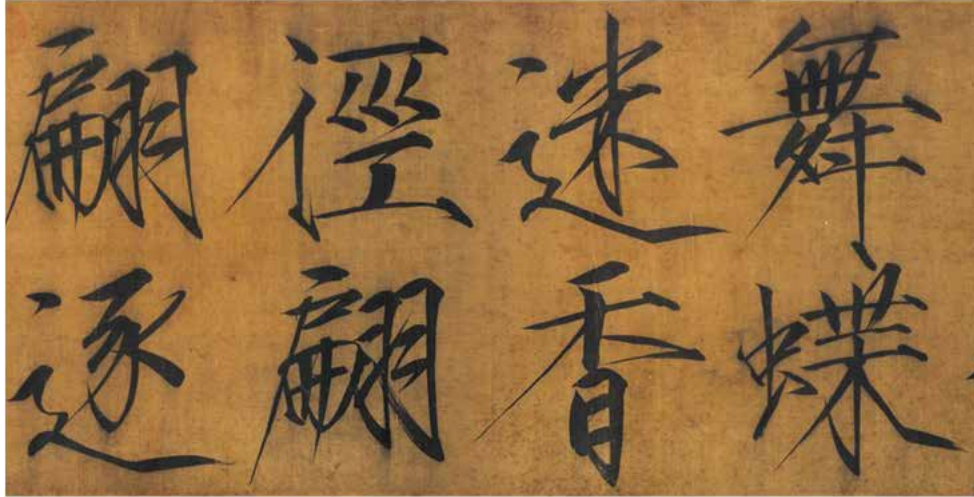 舞蝶
迷香
徑翩
翩逐